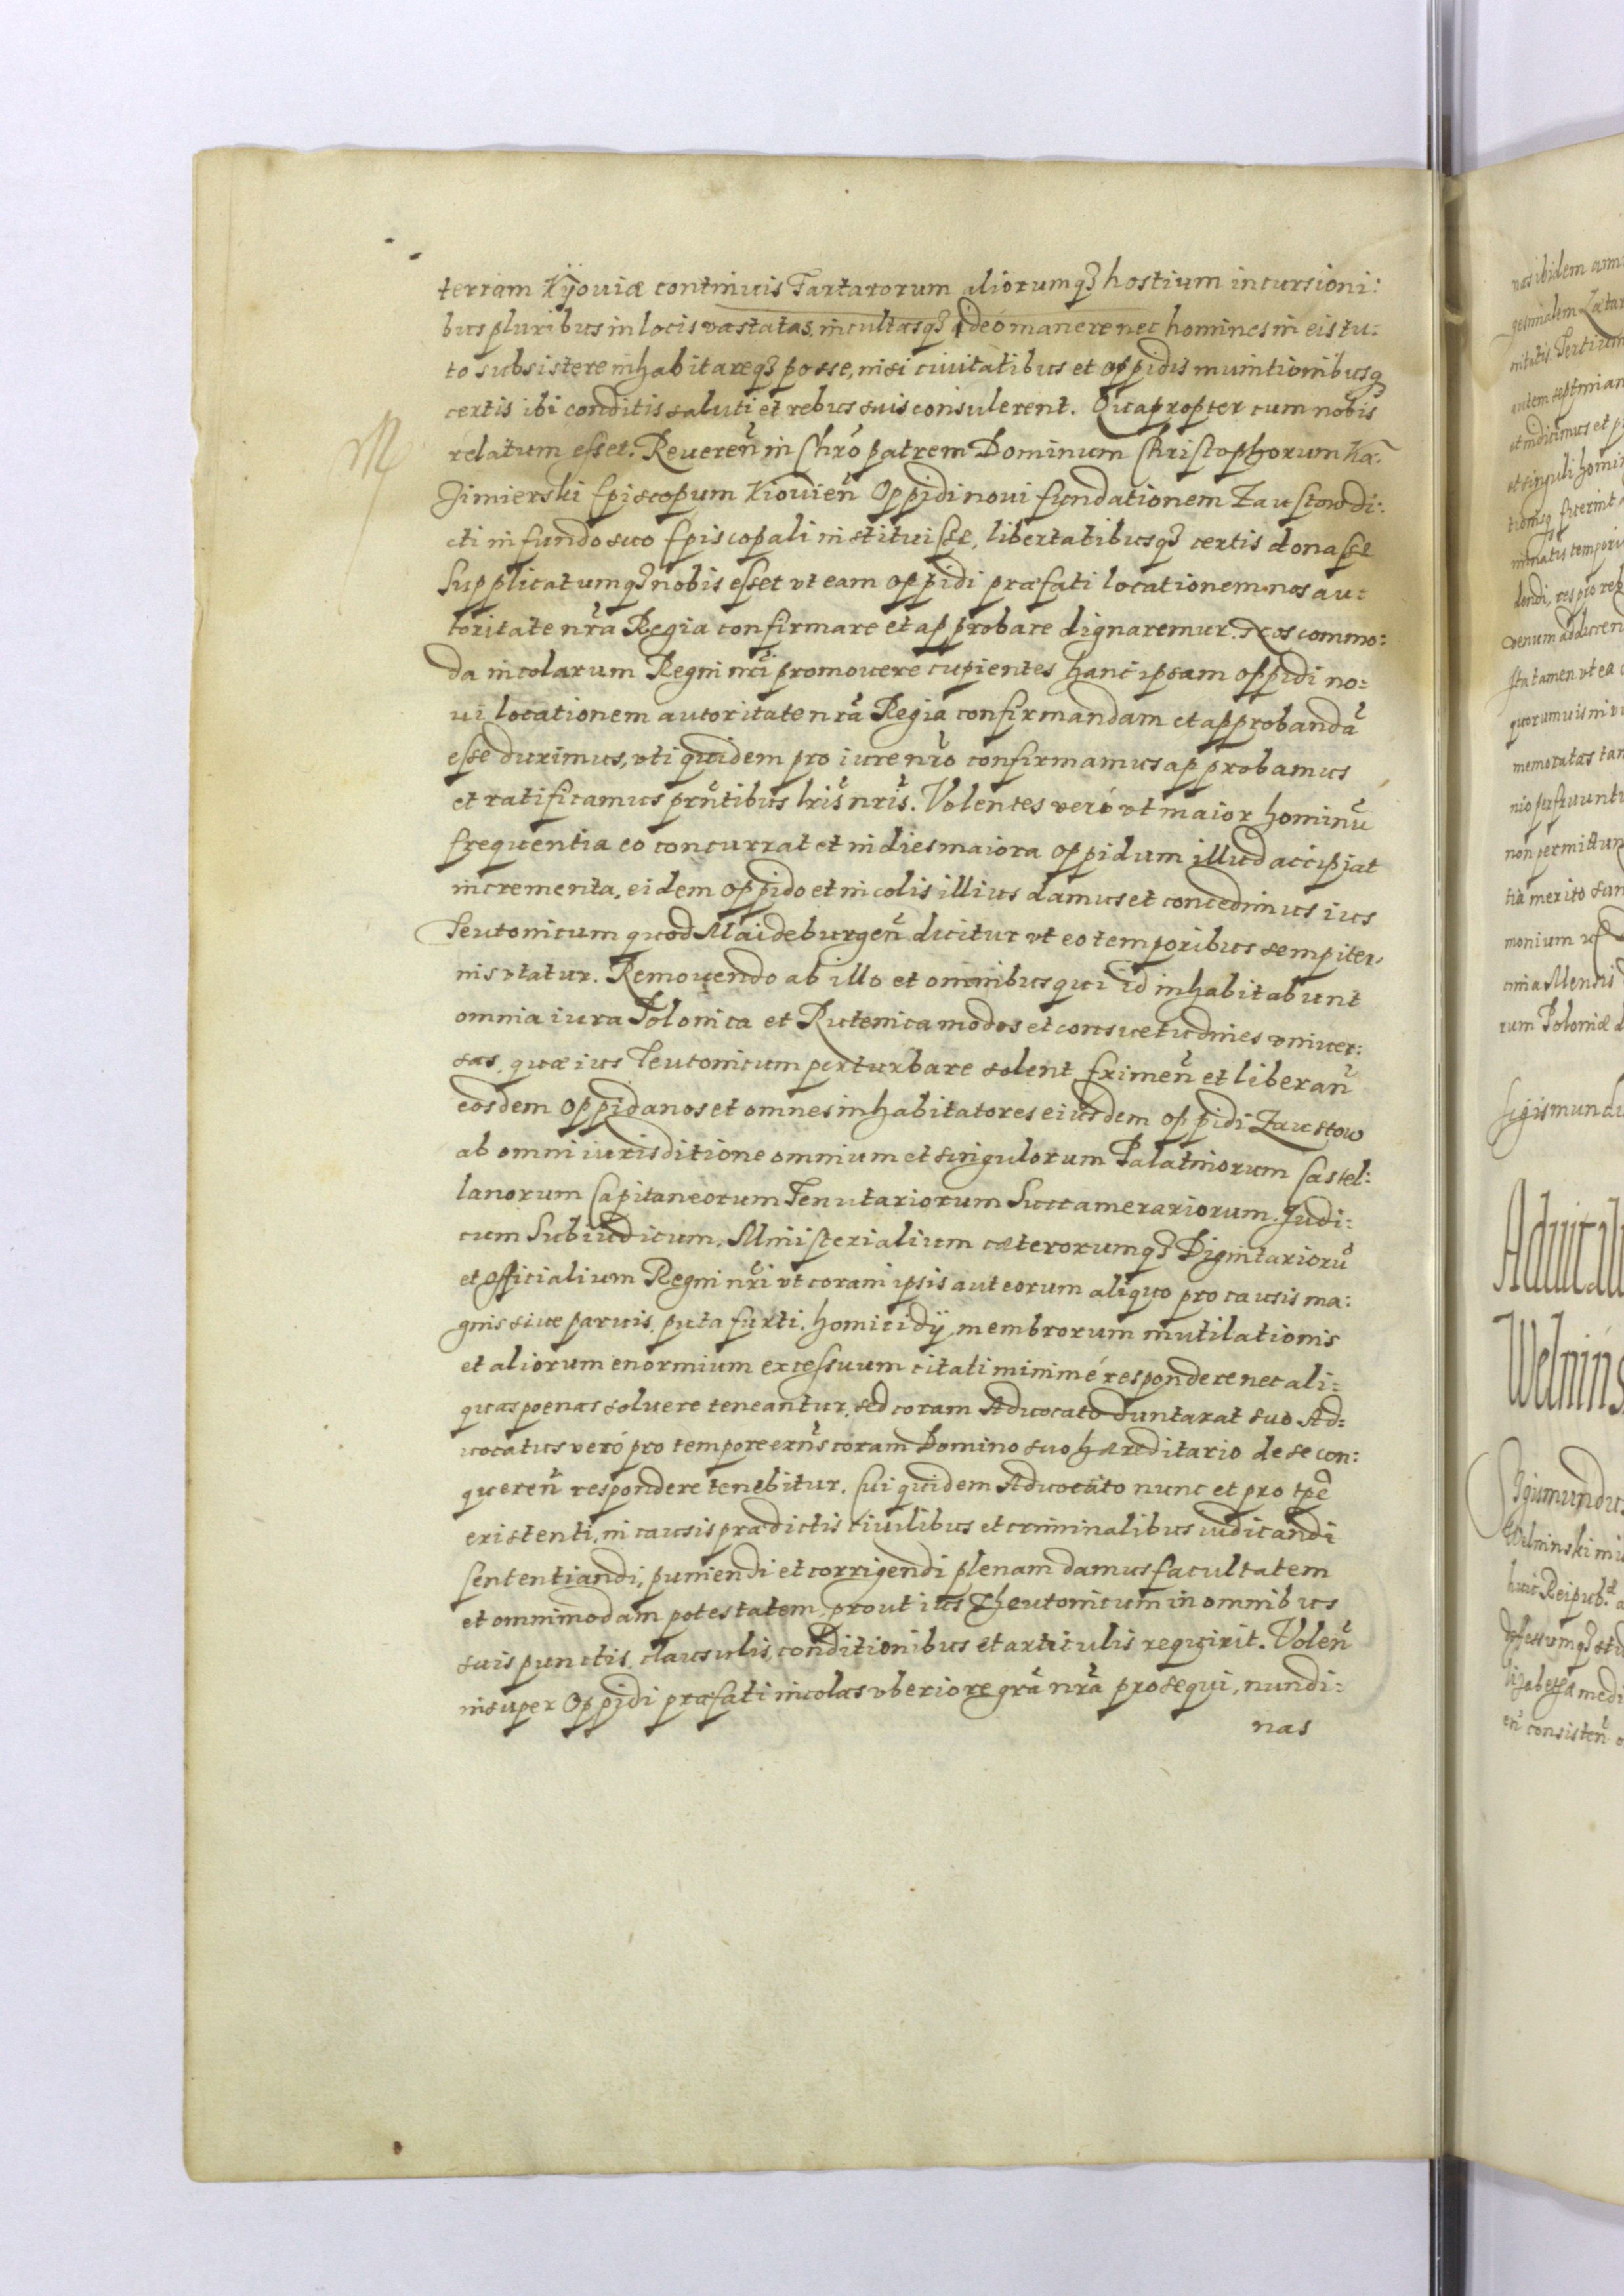 terram Kÿouiæ continuis Tartarorum aliorumqꝫ hostium incursioni:
bus pluribus in locis vastatas, incultasqꝫ ideó manere nec homines in eis tu:
to subsistere inhabitareqꝫ posse, nisi ciuitatibus et oppidis munitionibusqꝫ
certis ibi conditis saluti et rebus suis consulerent. Quapropter cum nobis
relatum esset. Reueren̄ in Chr̄o patrem Dominum Christophorum Ka:
zimierski Episcopum Kiouien̄ Oppidi noui fundationem Zaustow di:
cti in fundo suo Episcopali instituisse, libertatibusqꝫ certis donasse
Supplicatumqꝫ nobis esset vt eam oppidi præfati locationem nos au:
toritate nr̄a Regia confirmare et approbare dignaremur. Nos commo:
da incolarum Regni nr̄i promouere cupientes hanc ipsam oppidi no:
ui locationem autoritate nr̄a Regia confirmandam et approbandā
esse duximus, vti quidem pro iure nr̄o confirmamus approbamus
et ratificamus prn̄tibus lris̄ nris̄. Volentes veró vt maior hominū
frequentia eo concurrat et in dies maiora oppidum illud accipiat
incrementa, eidem oppido et incolis illius damus et concedimus ius
Teutonicum quod Maideburgen̄ dicitur vt eo temporibus sempiter,
nis vtatur. Remouendo ab illo et omnibus qui id inhabitabunt
omnia iura Polonica et Rutenica modos et consuetudines vniuer:
sas, quæ ius Teutonicum perturbare solent Eximen̄ et liberan̄
eosdem oppidanos et omnes inhabitatores eiusdem oppidi Zaustow
ab omni iurisditione omnium et singulorum Palatinorum Castel:
lanorum Capitaneorum Tenutariorum Succamerariorum, Judi:
cum Subiudicum, Ministerialium cæterorumqꝫ Dignitariorū
et officialium Regni nr̄i vt coram ipsis aut eorum aliquo pro causis ma:
gnis siue paruis, puta furti, homicidÿ, membrorum mutilationis
et aliorum enormium excessuum citati minimé respondere nec ali:
quas poenas soluere teneantur, sed coram Aduocato duntaxat suo Ad:
uocatus veró pro tempore exn̄s coram Domino suo hæreditario de se con:
queren̄ respondere tenebitur. Cui quidem Aduocato nunc et pro tp̄e
existenti, in causis prædictis ciuilibus et criminalibus iudicandi
sententiandi, puniendi et corrigendi plenam damus facultatem
et omnimodam potestatem, prout ius Theutonicum in omnibus
suis punctis, clausulis, conditionibus et articulis requirit. Volen̄
insuper Oppidi præfati incolas vberiore gr̄a nr̄a prosequi, nundi:
nas
Sigismundu
Aduital
Welnins